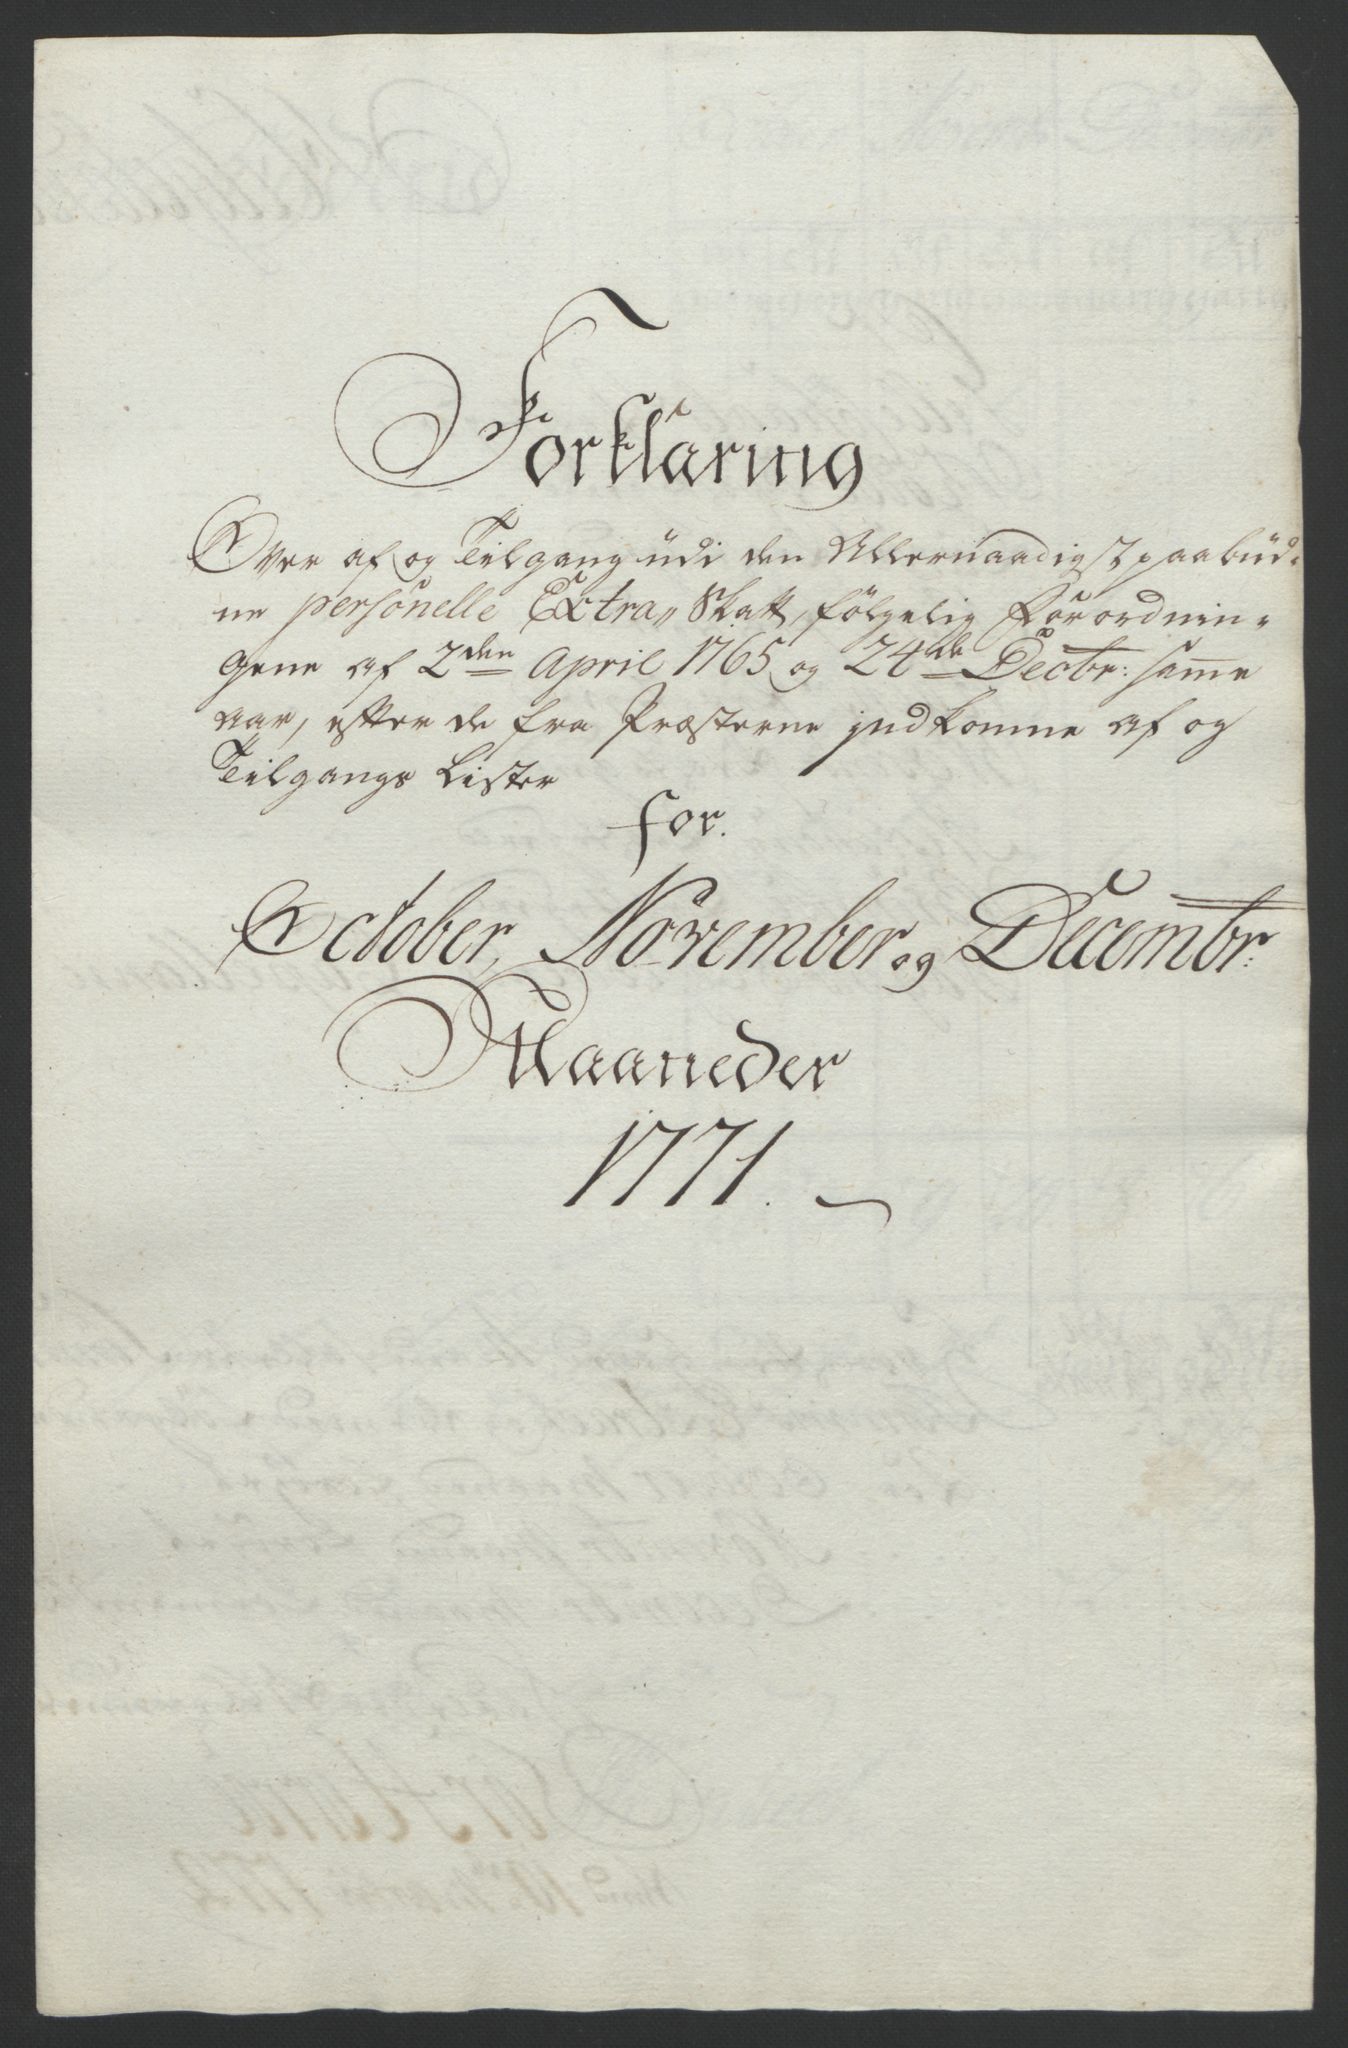 Forklaring
Over af og Tilgang udi den Allernaadigst paabud-
ne personelle Extra Skatt, følgelig Forordnin-
gene af 2den April 1765 og 24de Decbr: samme
aar, efter de fra Præsterne indkomne af og
Tilgangs Lister
for.
October, November og Decembr:
Maaneder
1771.